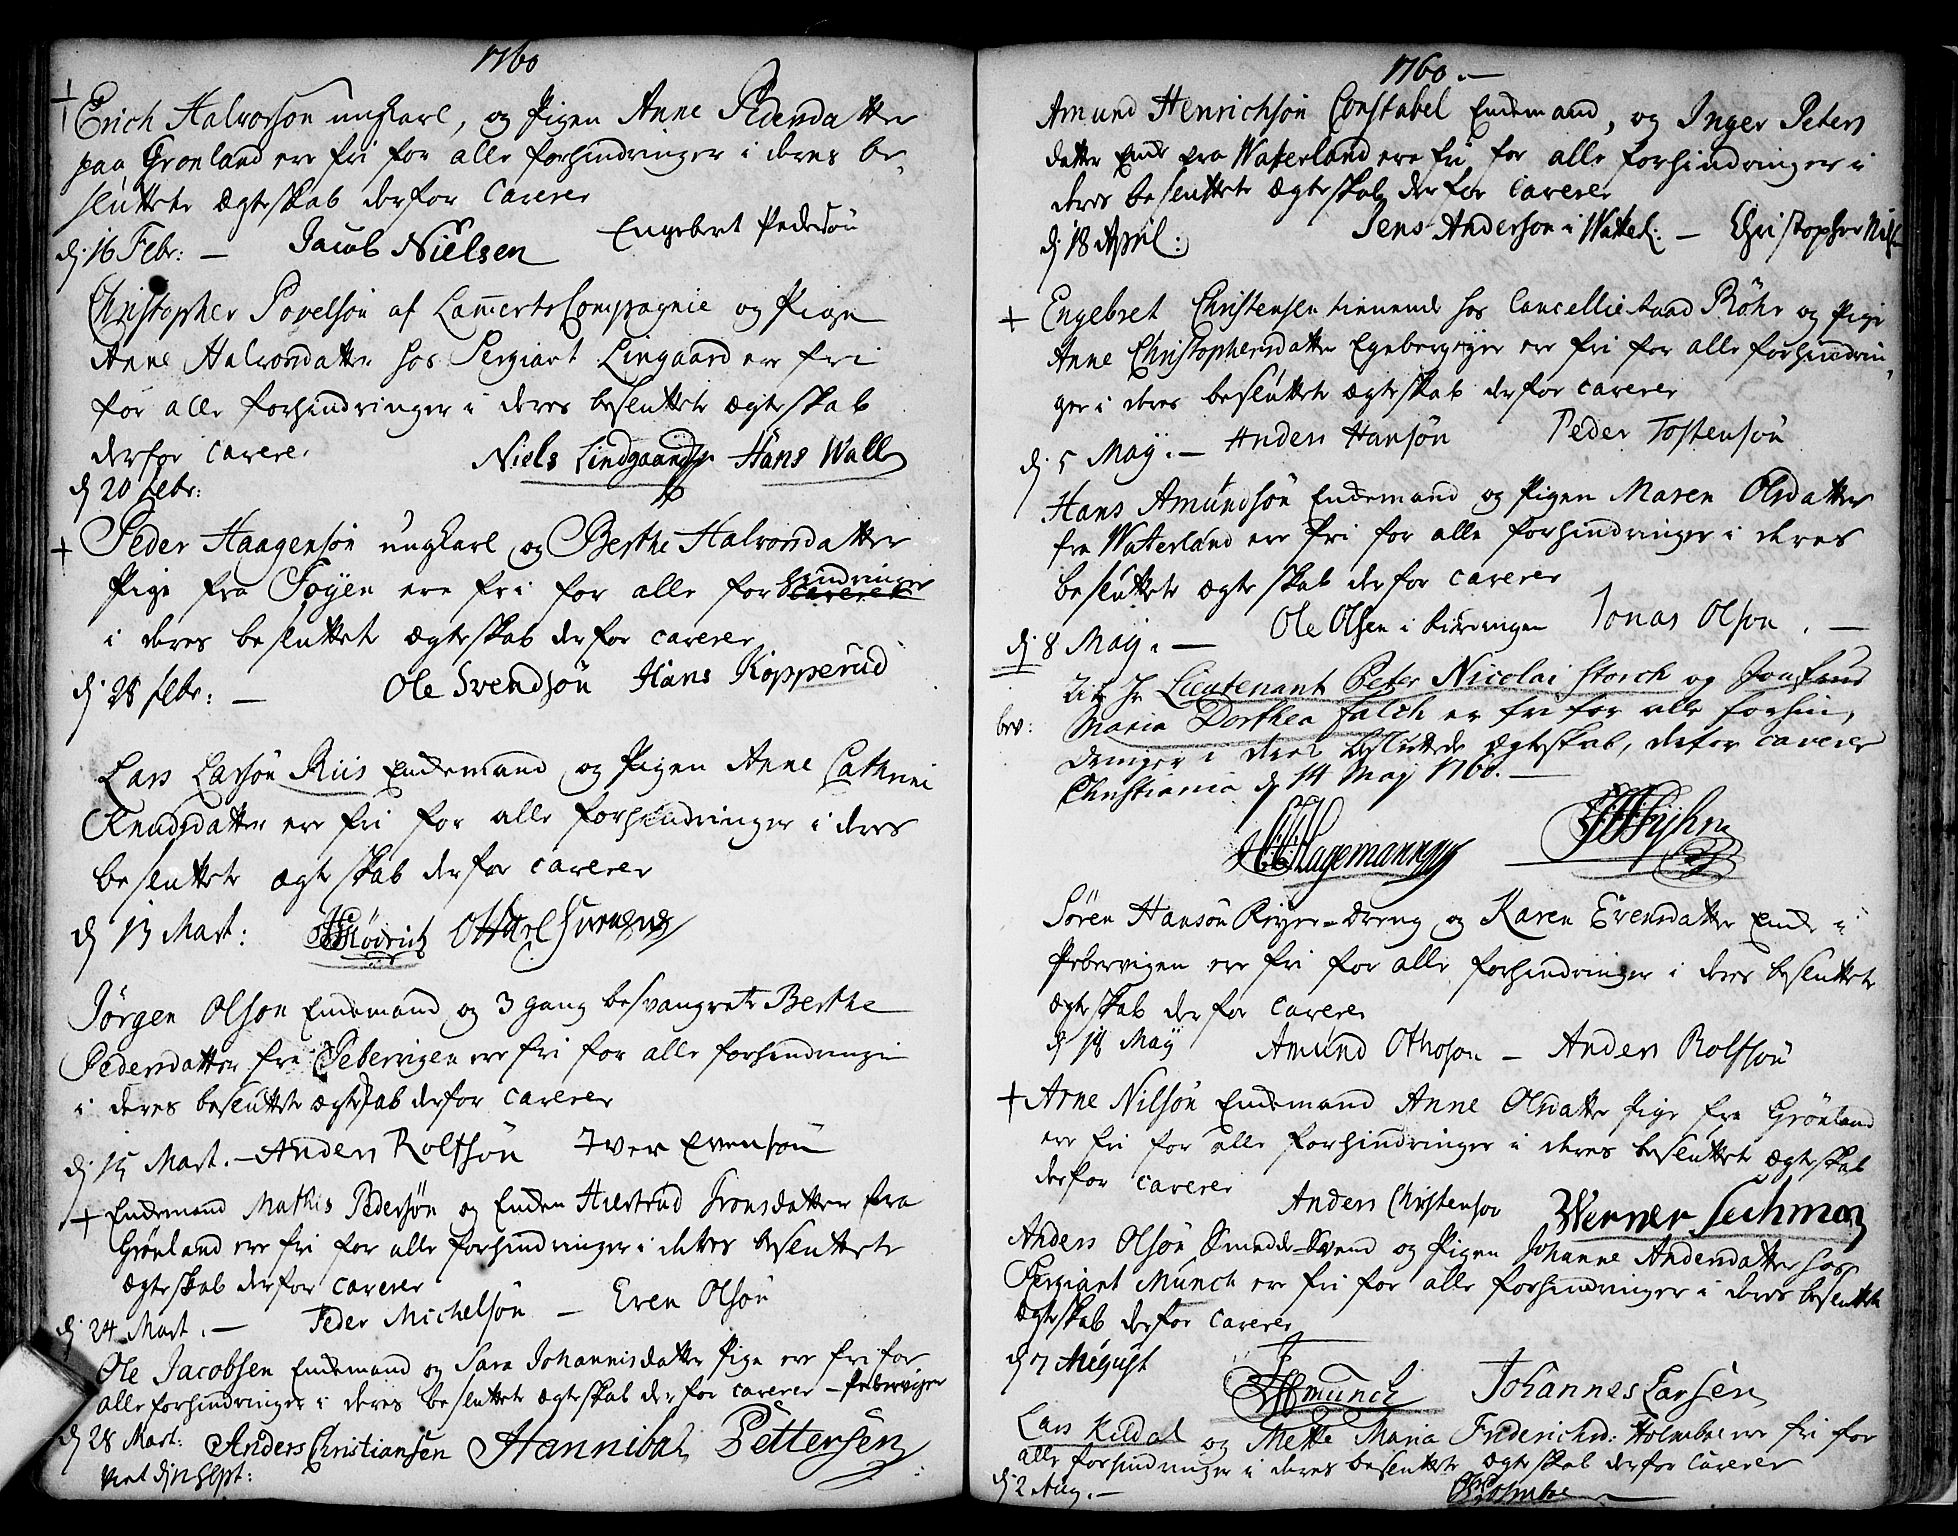 1760
+ Erich Halvorsøn ungkarl, og Pigen Anne Pedersdatter
paa Grønland ere fri for alle forhindringer i deres be-
sluttete ægteskab derfor Caverer
dj 16 Febr: — Jacob Nielsen Engebert Pedersøn
Christopher Povelsøn af Lammerts Compagnie og Pigen
Anne Halvorsdatter hos Sergiant Lingaard ere fri
for alle forhindringer i deres besluttete ægteskab
derfor Caverer
Niels Lindgaard Hans Wall
dj 20 Febr:
+ Peder Haagensøn ungkarl og Berthe Halvorsdatter
Pige fra Tøyen ere fri for alle forhindringer
i deres besluttete ægteskab derfor caverer
dj 28 febr: — Ole Svendsøn Hans Kopperud
Lars Larsøn Riis Enkemand og Pigen Anne Cathrine
Knudsdatter ere fri for alle forhindringer i deres
besluttete ægteskab derfor caverer
dj 13 Mart:
Jørgen Olson Enkemand og 3 gang besvangrete Berthe
Pedersdatter fra Pebervigen ere fri for alle forhindringer
i deres besluttete ægteskab derfor Caverer
dj 15 Mart. — Anders Rolfsøn Iver Evensøn
+ Enkemand Mathis Pedersøn og Enken Siertrud Tronsdatter fra
Grønland ere fri for alle forhindringer i deres besluttete
ægteskab derfor caverer
dj 24 Mart. — Peder Michelsøn — Even Olsøn
Ole Jacobsen Enkemand og Sara Johannisdatter Pige ere fri for
alle forhindringer i deres besluttete ægteskab derfor caverer — Pebervigen
dj 28 Mart: Anders Christiansen Hannibal Pettersen
viet dj 12 Sept:
1760. —
Amund Henrichsøn Constabel Enkemand, og Inger Peters
datter Enke fra Waterland ere fri for alle forhindringer i
deres besluttete ægteskab derfor Caverer
dj 18 April: Jens Andersøn i Watterl: — Christopher Nils
+ Engebret Christensen tienende hos Cancellie Raad Röhr og Pige
Anne Christophersdatter Egebergiger ere fri for alle forhindrin-
ger i deres besluttete ægteskab derfor caverer
dj 5 May. — Anders Hansøn Peder Tostensøn
Hans Amundsøn Enkemand og Pigen Maren Olsdatter
fra Waterland ere fri for alle forhindringer i deres
besluttete ægteskab derfor caverer
dj 8 May. — Ole Olsen i Jonas Olson. —
bev: Hr Lieutenant Peter Nicolai Storch og Jomfrue
Maria Dorthea Falch er fri for alle forhin-
dringer i deres besluttede ægteskab, derfor caverer
Christiania dj 14 Maj 1760. —
Hagemann
Søren Hansøn Reyer-dreng og Karen Evensdatter Enke i
Pebervigen ere fri for alle forhindringer i deres besluttete
ægteskab derfor caverer
dj 18 May Amund Othoson — Anders Rolfsøn
+ Arne Nilsøn Enkemand Anne Olsdatter Pige fra Grønland
ere fri for alle forhindringer i deres besluttete ægteskab
derfor caverer
Anders Christensøn Werner
Anders Olsøn Smedde-Svend og Pigen Johanne Andersdatter hos
Sergiant Munch ere fri for alle forhindringer i deres besluttete
ægteskab derfor caverer
dj 7 August Munch Johannes Larsen
Lars Kildal og Mette Maria Friderichsd: Holmboe ere fri for
alle forhindringer i deres besluttete ægteskab derfor caverer
dj 2 Aug. — Holmboe